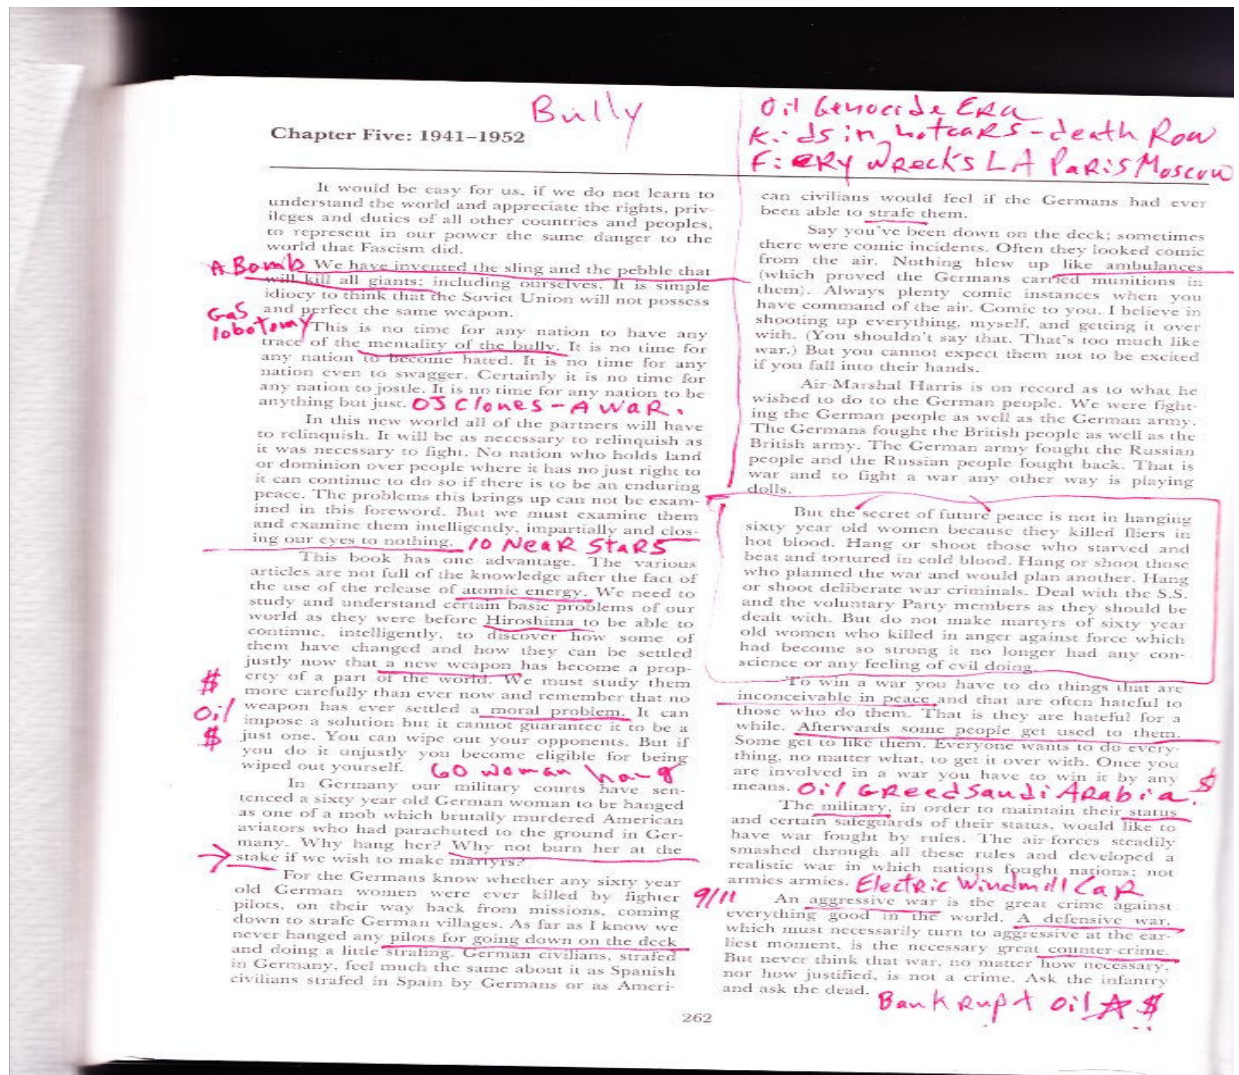 Bully
Oil Genocide Era
Kids in hotcars - death Row
Fiery wrecks LA Paris Moscow
Chapter Five: 1941–1952
It would be easy for us, if we do not learn to
understand the world and appreciate the rights, priv-
ileges and duties of all other countries and peoples,
to represent in our power the same danger to the
world that Fascism did.
A Bomb
We have invented the sling and the pebble that
will kill all giants; including ourselves. It is simple
idiocy to think that the Soviet Union will not possess
and perfect the same weapon.
Gas
lobotomy
This is no time for any nation to have any
trace of the mentality of the bully. It is no time for
any nation to become hated. It is no time for any
nation even to swagger. Certainly it is no time for
any nation to jostle. It is no time for any nation to be
anything but just.
OJ Clones - A War.
In this new world all of the partners will have
to relinquish. It will be as necessary to relinquish as
it was necessary to fight. No nation who holds land
or dominion over people where it has no just right to
it can continue to do so if there is to be an enduring
peace. The problems this brings up can not be exam-
ined in this foreword. But we must examine them
and examine them intelligently, impartially and clos-
ing our eyes to nothing.
10 Near Stars
This book has one advantage. The various
articles are not full of the knowledge after the fact of
the use of the release of atomic energy. We need to
study and understand certain basic problems of our
world as they were before Hiroshima to be able to
continue, intelligently, to discover how some of
them have changed and how they can be settled
justly now that a new weapon has become a prop-
erty of a part of the world. We must study them
more carefully than ever now and remember that no
weapon has ever settled a moral problem. It can
impose a solution but it cannot guarantee it to be a
just one. You can wipe out your opponents. But if
you do it unjustly you become eligible for being
wiped out yourself.
$
Oil
$
60 woman hang
In Germany our military courts have sen-
tenced a sixty year old German woman to be hanged
as one of a mob which brutally murdered American
aviators who had parachuted to the ground in Ger-
many. Why hang her? Why not burn her at the
stake if we wish to make martyrs?
For the Germans know whether any sixty year
old German women were ever killed by fighter
pilots, on their way back from missions, coming
down to strafe German villages. As far as I know we
never hanged any pilots for going down on the deck
and doing a little strafing. German civilians, strafed
in Germany, feel much the same about it as Spanish
civilians strafed in Spain by Germans or as Ameri-
can civilians would feel if the Germans had ever
been able to strafe them.
Say you've been down on the deck; sometimes
there were comic incidents. Often they looked comic
from the air. Nothing blew up like ambulances
(which proved the Germans carried munitions in
them). Always plenty comic instances when you
have command of the air. Comic to you. I believe in
shooting up everything, myself, and getting it over
with. (You shouldn't say that. That's too much like
war.) But you cannot expect them not to be excited
if you fall into their hands.
Air-Marshal Harris is on record as to what he
wished to do to the German people. We were fight-
ing the German people as well as the German army.
The Germans fought the British people as well as the
British army. The German army fought the Russian
people and the Russian people fought back. That is
war and to fight a war any other way is playing
dolls.
But the secret of future peace is not in hanging
sixty year old women because they killed fliers in
hot blood. Hang or shoot those who starved and
beat and tortured in cold blood. Hang or shoot those
who planned the war and would plan another. Hang
or shoot deliberate war criminals. Deal with the S.S.
and the voluntary Party members as they should be
dealt with. But do not make martyrs of sixty year
old women who killed in anger against force which
had become so strong it no longer had any con-
science or any feeling of evil doing.
To win a war you have to do things that are
inconceivable in peace and that are often hateful to
those who do them. That is they are hateful for a
while. Afterwards some people get used to them.
Some get to like them. Everyone wants to do every-
thing, no matter what, to get it over with. Once you
are involved in a war you have to win it by any
means.
Oil Greed Saudi Arabia. $
The military, in order to maintain their status
and certain safeguards of their status, would like to
have war fought by rules. The air forces steadily
smashed through all these rules and developed a
realistic war in which nations fought nations; not
armies armies.
Electric Windmill Car
9/11
An aggressive war is the great crime against
everything good in the world. A defensive war,
which must necessarily turn to aggressive at the ear-
liest moment, is the necessary great counter-crime.
But never think that war, no matter how necessary,
nor how justified, is not a crime. Ask the infantry
and ask the dead.
Bankrupt Oil $
262